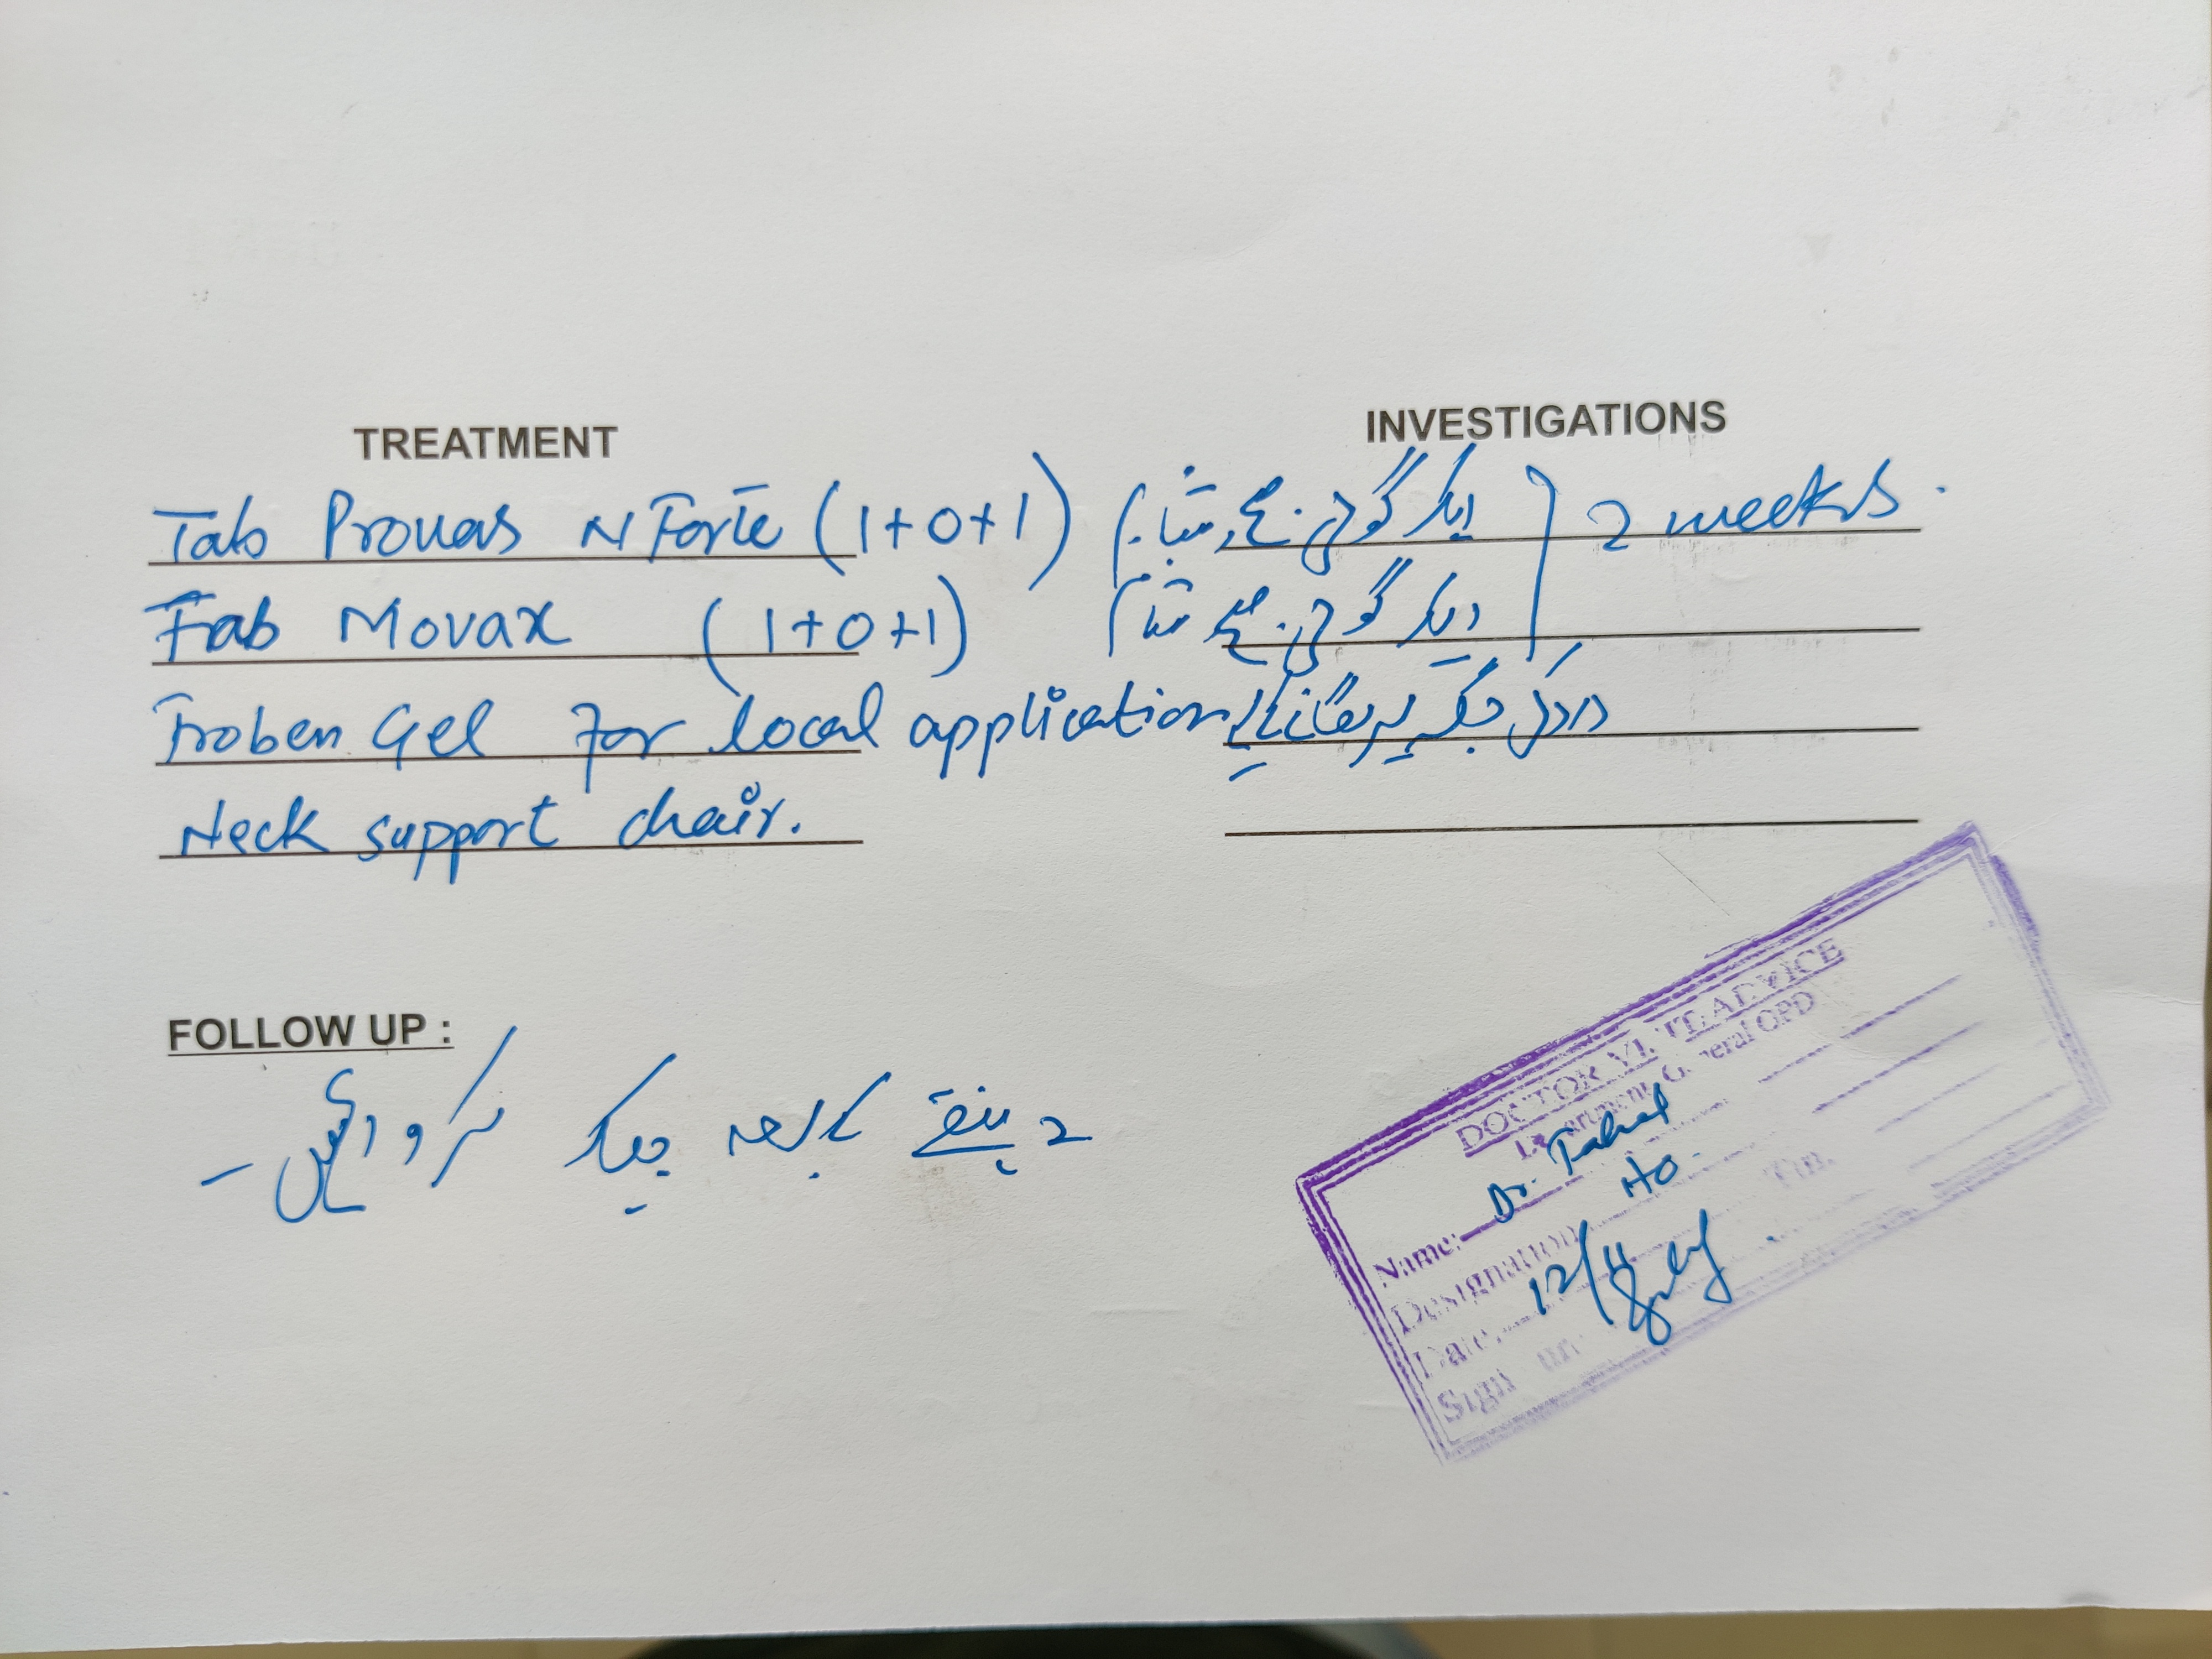 TREATMENT
INVESTIGATIONS
Tab Provas N Forte (1+0+1) (ایک گولی صبح، شام) 2 weeks.
Tab Movax (1+0+1) (ایک گولی صبح شام)
Froben Gel for local application درد کی جگہ پر لگانے کیلئے
Neck support chair.
FOLLOW UP :
2 ہفتے کے بعد چیک کروائیں -
DOCTOR ADVICE
General OPD
Name: Dr.
Designation HO.
Date, 12/11
Sign